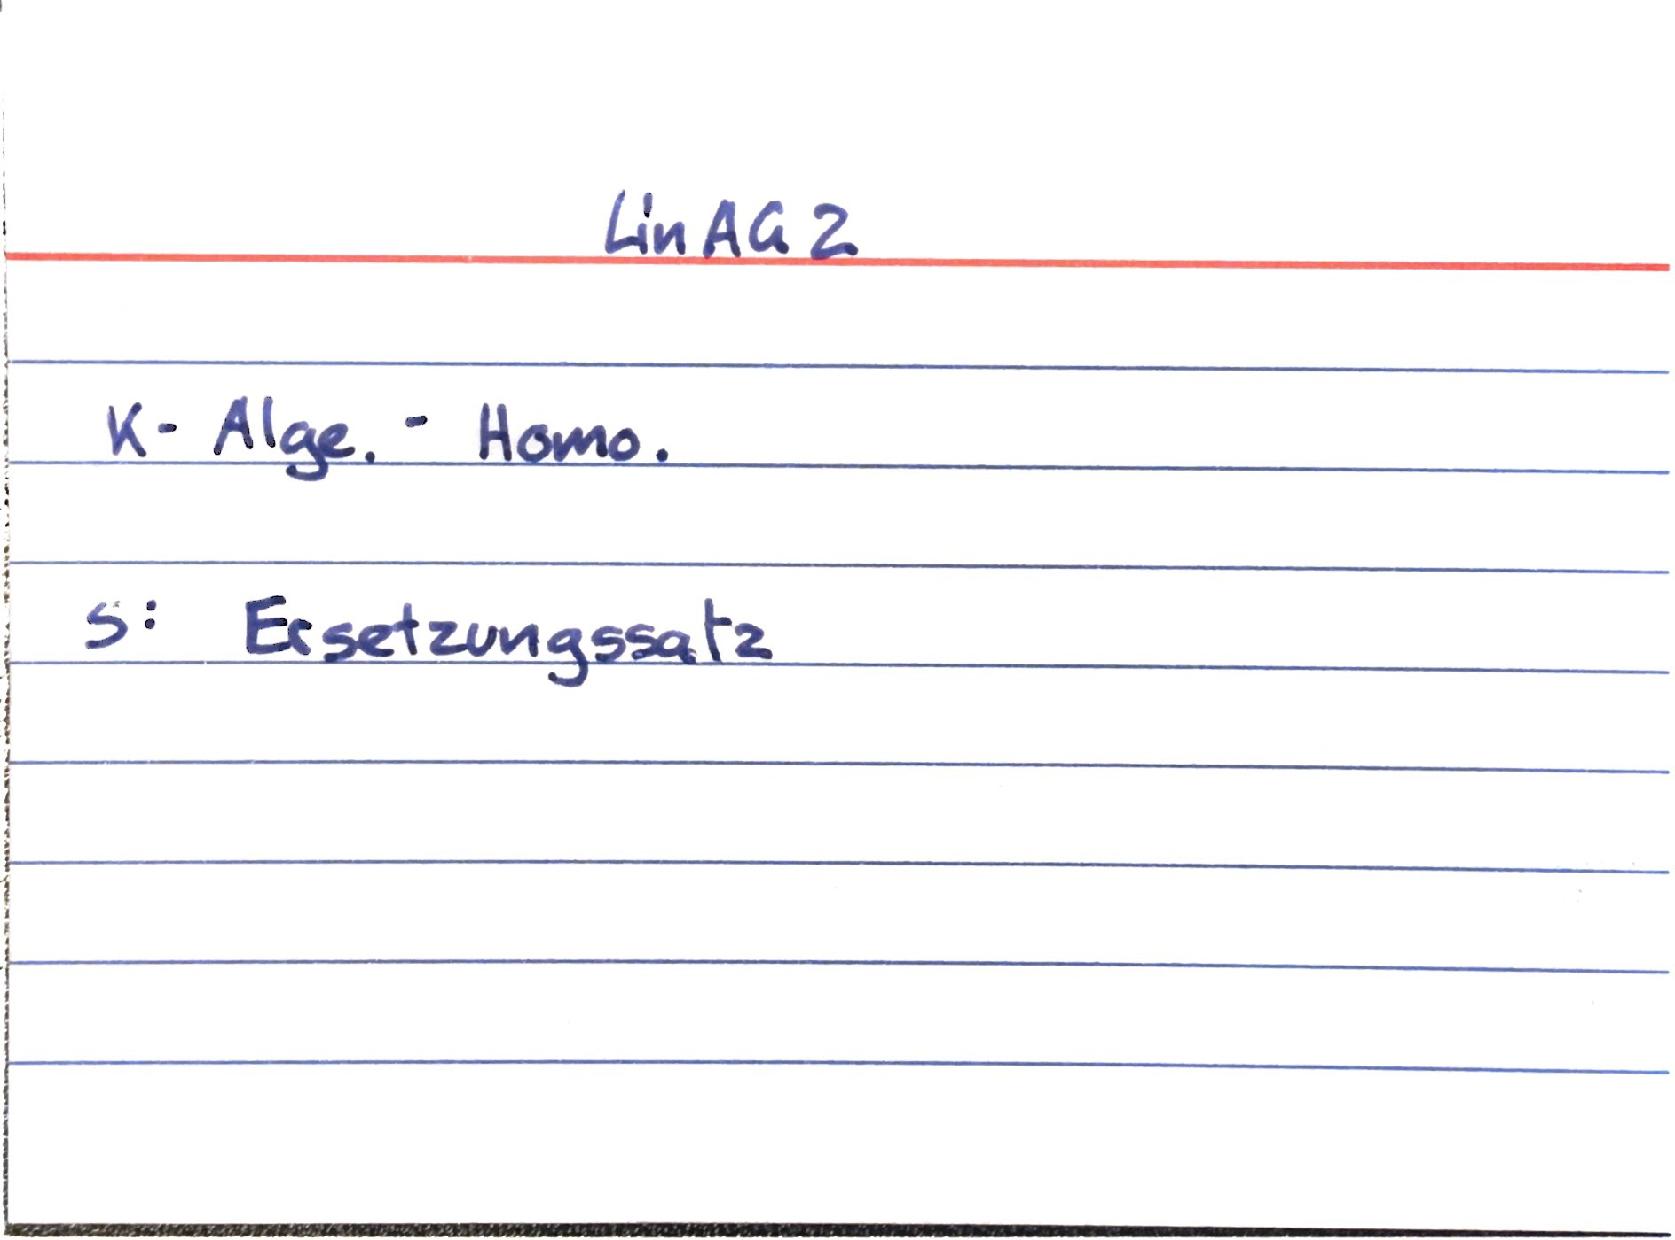 LinAG 2
K- Alge. - Homo.
S: Ersetzungssatz